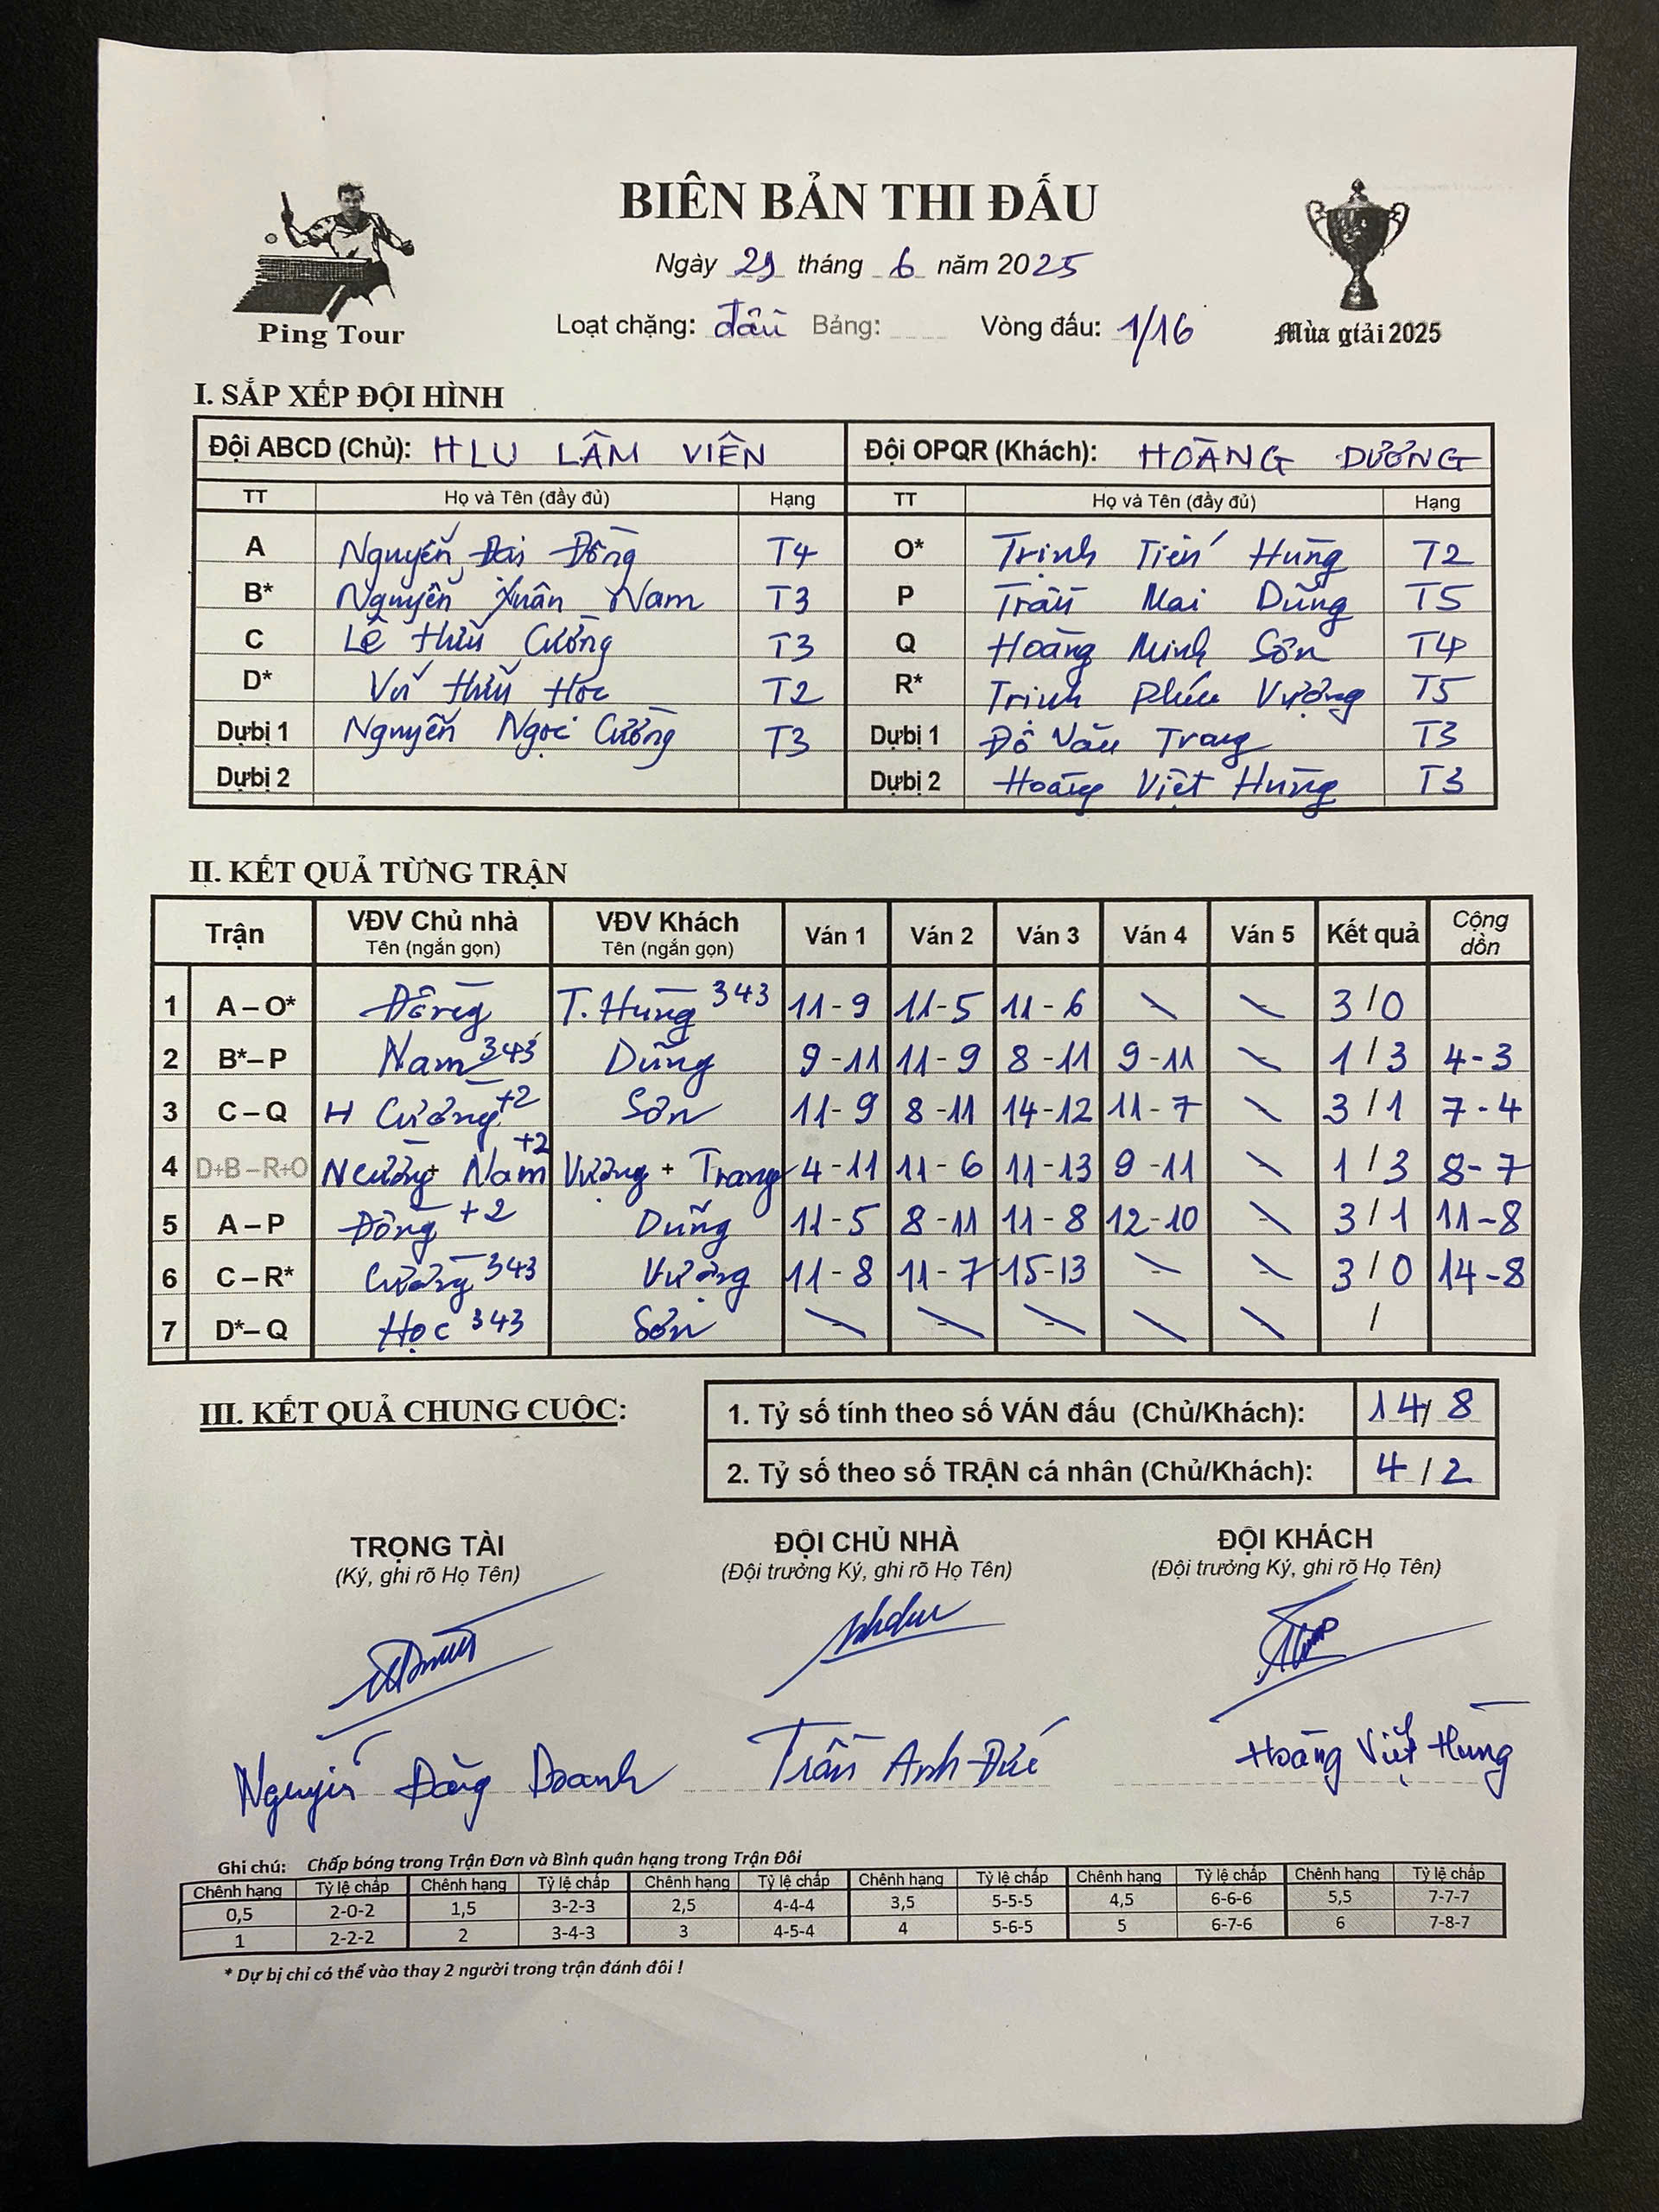 BIÊN BẢN THI ĐẤU
Ngày 29 tháng 6 năm 2025
Loạt chặng: đấu Bảng: Vòng đấu: 1/16
Ping Tour
Mùa giải 2025
I. SẮP XẾP ĐỘI HÌNH
Đội ABCD (Chủ): HLU LÂM VIÊN Đội OPQR (Khách): HOÀNG DƯƠNG
TT Họ và Tên (đầy đủ) Hạng TT Họ và Tên (đầy đủ) Hạng
A Nguyễn Đại Đồng T4 O* Trịnh Tiến Hùng T2
B* Nguyễn Xuân Nam T3 P Trần Mai Dũng T5
C Lê Hữu Cường T3 Q Hoàng Minh Sơn T4
D* Vũ Hữu Học T2 R* Trịnh Phúc Vượng T5
Dự bị 1 Nguyễn Ngọc Cường T3 Dự bị 1 Đỗ Văn Trang T3
Dự bị 2 Dự bị 2 Hoàng Việt Hùng T3
II. KẾT QUẢ TỪNG TRẬN
Trận VĐV Chủ nhà VĐV Khách Ván 1 Ván 2 Ván 3 Ván 4 Ván 5 Kết quả Cộng dồn
Tên (ngắn gọn) Tên (ngắn gọn)
1 A – O* Đồng T. Hùng 343 11-9 11-5 11-6 \ \ 3/0
2 B* – P Nam 343 Dũng 9-11 11-9 8-11 9-11 \ 1/3 4-3
3 C – Q H Cường +2 Sơn 11-9 8-11 14-12 11-7 \ 3/1 7-4
4 D+B – R+O N Cường + Nam +2 Vượng + Trang 4-11 11-6 11-13 9-11 \ 1/3 8-7
5 A – P Đồng +2 Dũng 11-5 8-11 11-8 12-10 \ 3/1 11-8
6 C – R* Cường 343 Vượng 11-8 11-7 15-13 \ \ 3/0 14-8
7 D* – Q Học 343 Sơn \ \ \ \ \ /
III. KẾT QUẢ CHUNG CUỘC:
1. Tỷ số tính theo số VÁN đấu (Chủ/Khách): 14/8
2. Tỷ số theo số TRẬN cá nhân (Chủ/Khách): 4/2
TRỌNG TÀI ĐỘI CHỦ NHÀ ĐỘI KHÁCH
(Ký, ghi rõ Họ Tên) (Đội trưởng Ký, ghi rõ Họ Tên) (Đội trưởng Ký, ghi rõ Họ Tên)
Nguyễn Đăng Doanh Trần Anh Đức Hoàng Việt Hùng
Ghi chú: Chấp bóng trong Trận Đơn và Bình quân hạng trong Trận Đôi
Chênh hạng Tỷ lệ chấp Chênh hạng Tỷ lệ chấp Chênh hạng Tỷ lệ chấp Chênh hạng Tỷ lệ chấp Chênh hạng Tỷ lệ chấp Chênh hạng Tỷ lệ chấp
0,5 2-0-2 1,5 3-2-3 2,5 4-4-4 3,5 5-5-5 4,5 6-6-6 5,5 7-7-7
1 2-2-2 2 3-4-3 3 4-5-4 4 5-6-5 5 6-7-6 6 7-8-7
* Dự bị chỉ có thể vào thay 2 người trong trận đánh đôi !